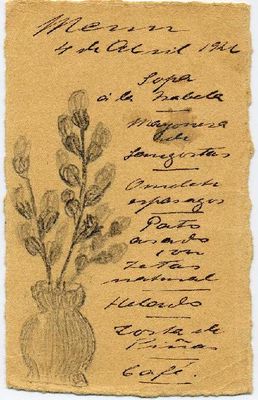 Menu
4 de Abril
Sopa
a la Isabela
Mayonesa
de
Langostas
Omelete
esparagos
Pato
asado
con
natural
Helado
Torta de
Piñas
Café.